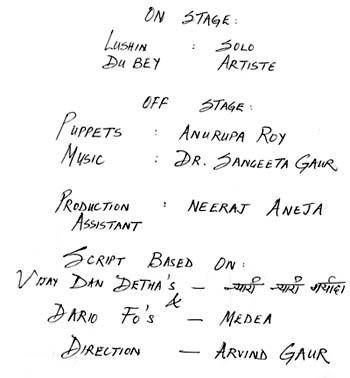 ON STAGE:
LUSHIN : SOLO
DUBEY ARTISTE
OFF STAGE:
PUPPETS : ANURUPA ROY
MUSIC : DR. SANGEETA GAUR
PRODUCTION : NEERAJ ANEJA
ASSISTANT
SCRIPT BASED ON:
VIJAY DAN DETHA'S — न्यारी न्यारी मर्यादा
&
DARIO FO'S — MEDEA
DIRECTION — ARVIND GAUR